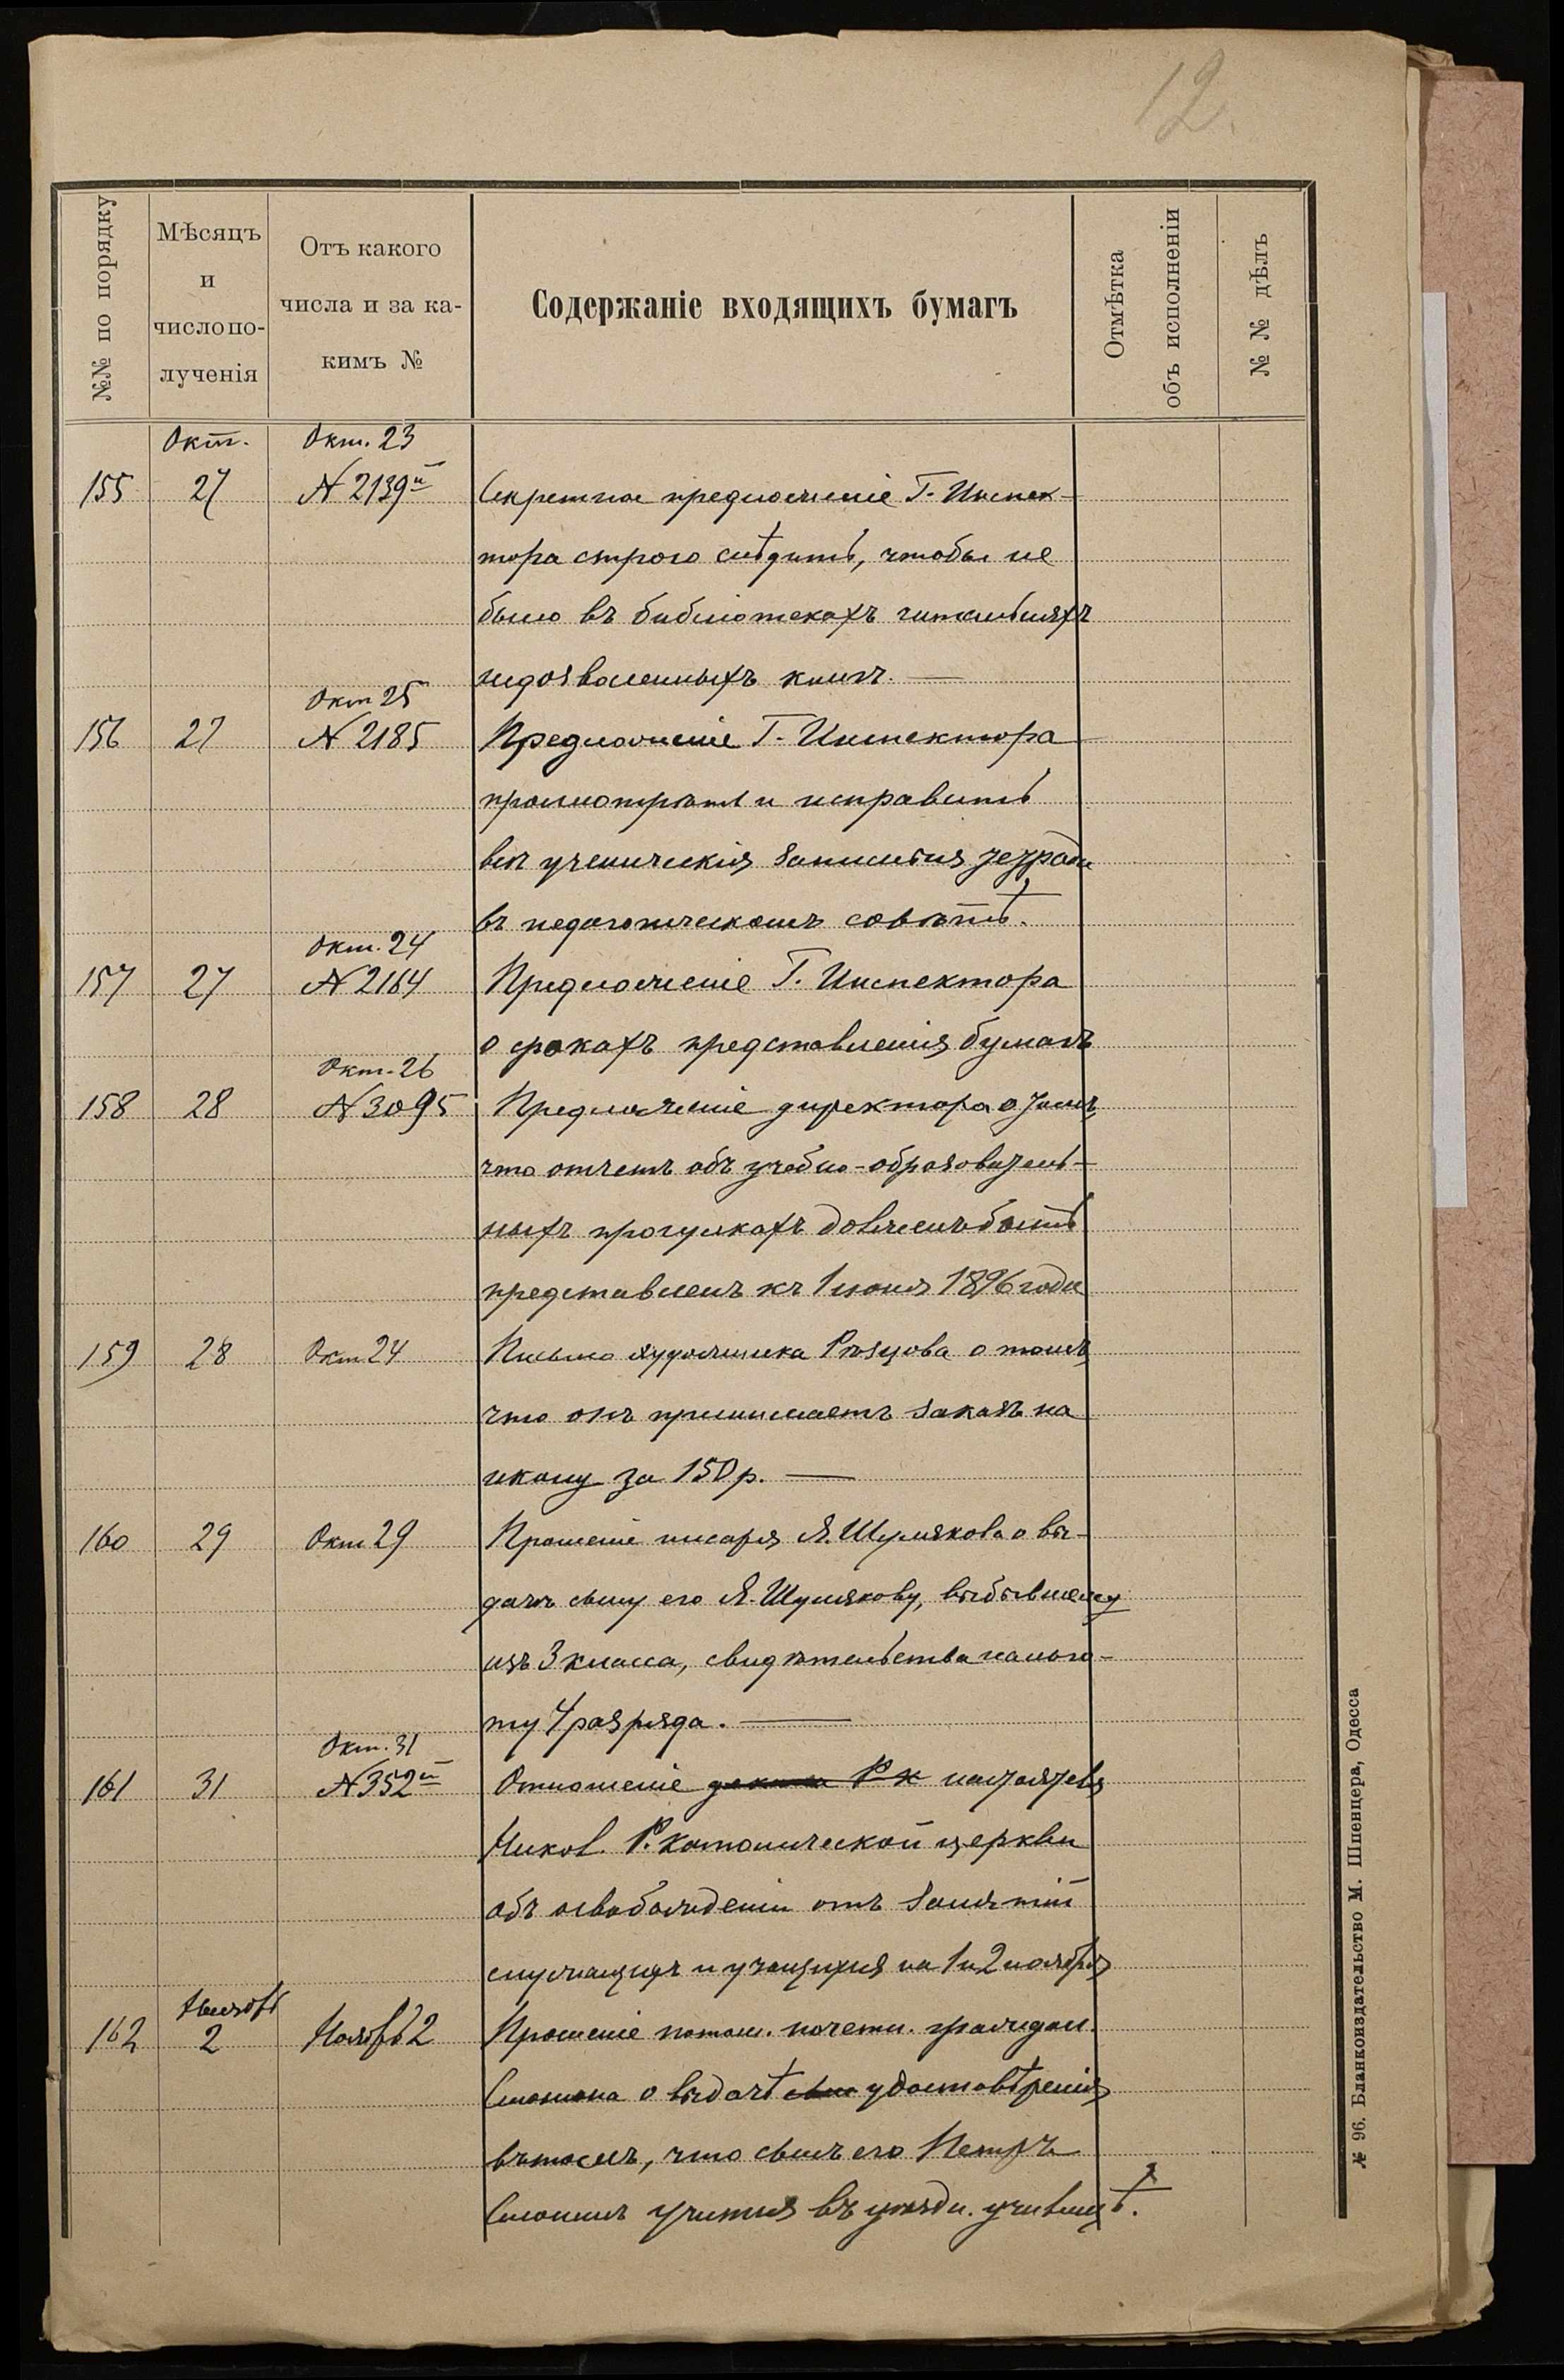 12.
№№ по порядку
Мѣсяцъ
и
число по-
лученія
Отъ какого
числа и за ка-
кимъ №
Содержаніе входящихъ бумагъ
Отмѣтка
объ исполненіи
№ № дѣлъ
Окт. Окт. 23
155 27 № 2139й Секретное предложеніе Г. Инспек-
тора строго слѣдить, чтобы не
было въ библіотекахъ читальняхъ
недозволенныхъ книгъ. —
Окт 25
156 27 № 2185 Предложеніе Г. Инспектора
просмотрѣть и исправить
всѣ ученическія записныя тетради
въ педагогическомъ совѣтѣ.
Окт. 24
157 27 № 2164 Предложеніе Г. Инспектора
о срокахъ представленія бумагъ
Окт. 26
158 28 № 3095 Предложеніе директора о томъ
что отчетъ объ учебно-образователь-
ныхъ прогулкахъ долженъ быть
представленъ къ 1 іюня 1896 года
159 28 Окт 24 Письмо художника о томъ
что онъ принимаетъ заказъ на
икону за 150 р. —
160 29 Окт 29 Прошеніе писаря Я. Шумякова о вы-
дачѣ сыну его Я. Шумякову, выбывшему
изъ 3 класса, свидѣтельства на льго-
ту 4 разряда. —
Окт. 31
161 31 № 352й Отношеніе Р К настоятеля
Никол. Р. Католической церкви
объ освобожденіи отъ занятій
служащихъ и учащихся на 1 и 2 ноября
Ноябрь
162 2 Ноябрь 2 Прошеніе потом. почетн. граждан.
о выдачѣ удостовѣренія
въ томъ, что сынъ его Петръ
учится въ уѣздн. училищѣ.
№ 96. Бланкоиздательство М. Шпенцера, Одесса